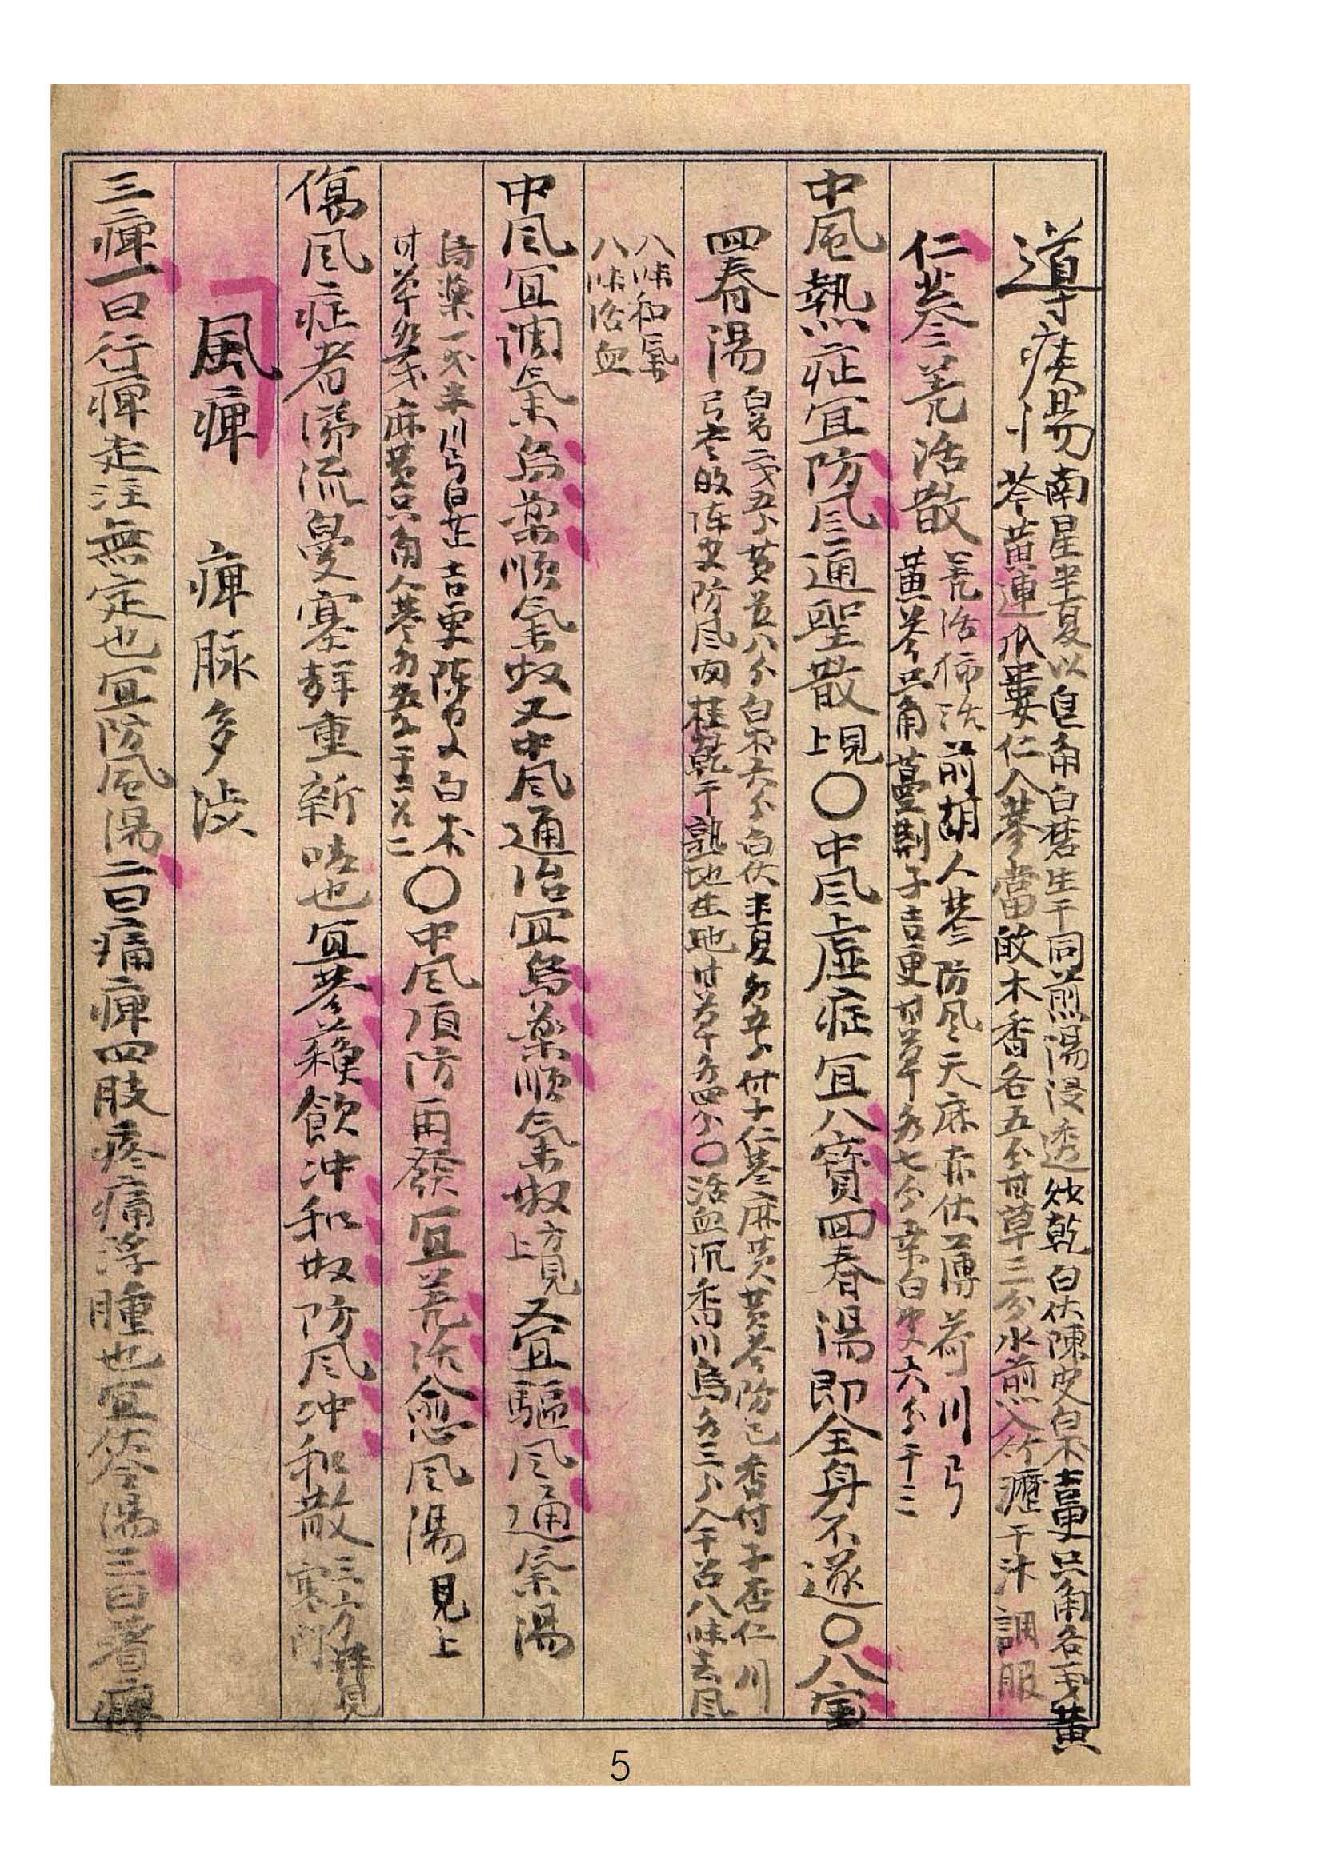 導痰湯 南星半夏以皂角白礬生干同煎湯浸透炒乾白伏陳皮白朮吉更只角各一戔黃
芩黃連瓜蔞仁人蔘當䢛木香各五分甘草三分水煎入竹瀝干汁調服
仁蔘羌活散 羌活獨活前胡人蔘防風天麻赤伏薄荷川弓
黃芩只角蔓荆子吉更甘草各七分桑白皮六分干三
中風熱症宜防風通聖散上見〇中風上虛症宜八寶四春湯即全身不遂〇八宝
四春湯 白芍二戔五分黃芪八分白朮六分白伏半夏各五分付子仁蔘麻黃黃芩防己香付子杏仁川
弓當䢛陈皮防風肉桂乾干熟地生地甘草各四分〇活血沉香川烏各三分入干召八味去風
八味和氣
八味活血
中風宜調氣烏藥順氣散又中風通治宜烏藥順氣散方見上又宜驅風通氣湯
烏藥一戔半川弓白芷吉更陳皮白朮
甘草各一戔麻黃只角人蔘各五分干三召二〇中風預防再發宜羌活愈風湯見上
傷風症者涕流鼻塞聲重新咳也宜蔘蘇飲冲和散防風冲和散三方詳見寒門
風痺 痺脉多澁
三痺一曰行痺走注無定也宜防風湯二曰痛痺四肢疼痛浮腫也宜茯苓湯三曰著痺
5